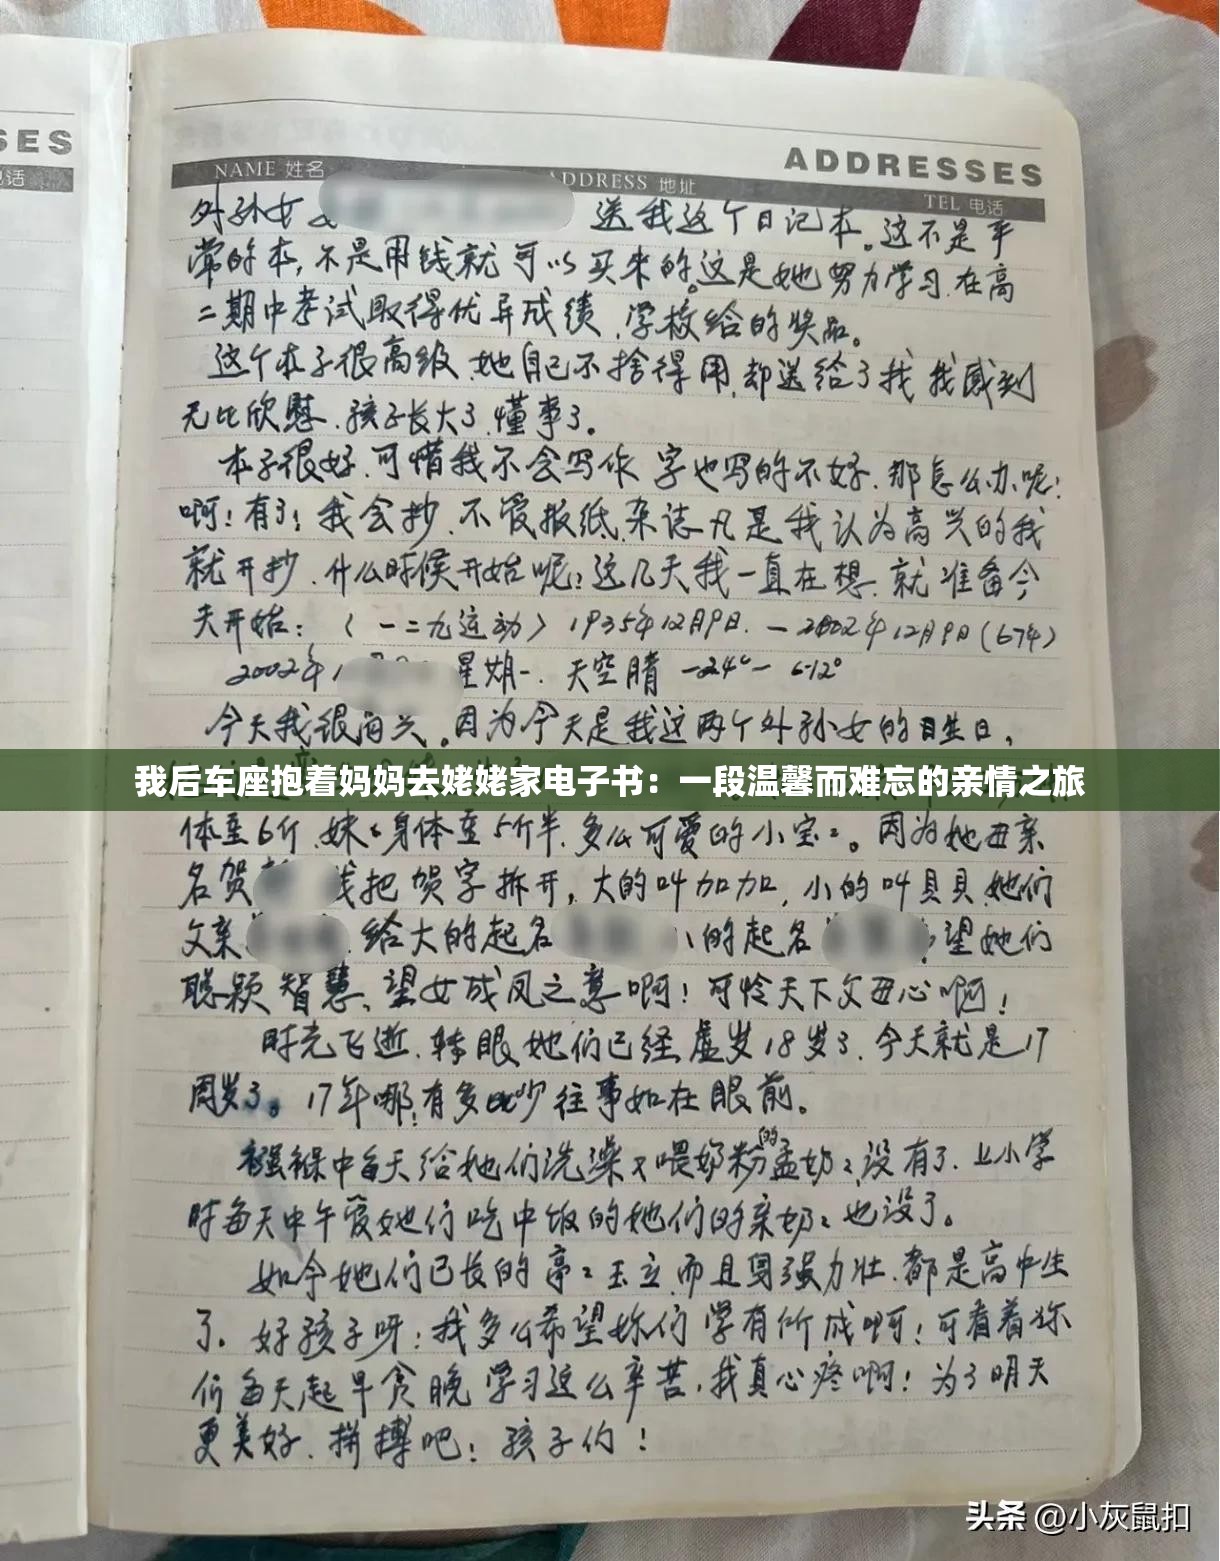 SES
电话
ADDRESSES
NAME 姓名
ADDRESS 地址
TEL 电话
外孙女 送我这个日记本。这不是平
常的本,不是用钱就可以买来的。这是她努力学习在高
二期中考试取得优异成绩,学校给的奖品。
这个本子很高级,她自己不捨得用,却送给了我 我感到
无比欣慰.孩子长大了.懂事了。
本子很好,可惜我不会写作 字也写的不好.那怎么办呢!
啊!有了!我会抄.不管报纸.杂志凡是我认为高兴的我
就开抄.什么时候开始呢?这几天我一直在想.就准备今
天开始:〈一二九运动〉1935年12月9日.—2002年12月9日(67年)
2002年1 星期一.天空晴 -24°— 6-12°
今天我很高兴。因为今天是我这两个外孙女的生日,
我后车座抱着妈妈去姥姥家电子书：一段温馨而难忘的亲情之旅
体重6斤.妹〻身体重5斤半.多么可爱的小宝〻。因为她母亲
名贺 把贺字拆开,大的叫加加,小的叫贝贝.她们
父亲 给大的起名 小的起名 望她们
聪颖智慧、望女成凤之意啊!可怜天下父母心啊!
时光飞逝.转眼她们已经虚岁18岁了.今天就是17
周岁了。17年哪!有多少往事如在眼前。
襁褓中每天给她们洗澡又喂奶粉的孟奶〻没有了.上小学
时每天中午管她们吃中饭的她们的亲奶〻也没了。
如今她们已长的亭〻玉立.而且身强力壮.都是高中生
了。好孩子呀!我多么希望你们学有所成啊!可看着你
们每天起早贪晚学习这么辛苦,我真心疼啊!为了明天
更美好.拼搏吧!孩子们!
头条 @小灰鼠扣